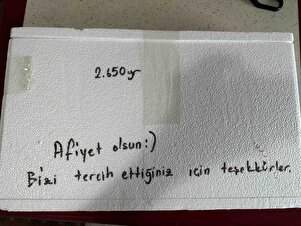 2.650gr
Afiyet olsun:)
Bizi tercih ettiğiniz için teşekkürler.